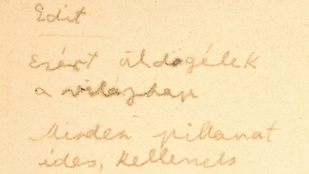 Edit
Ezért üldögélek
a világban
Minden pillanat
édes, kellemes